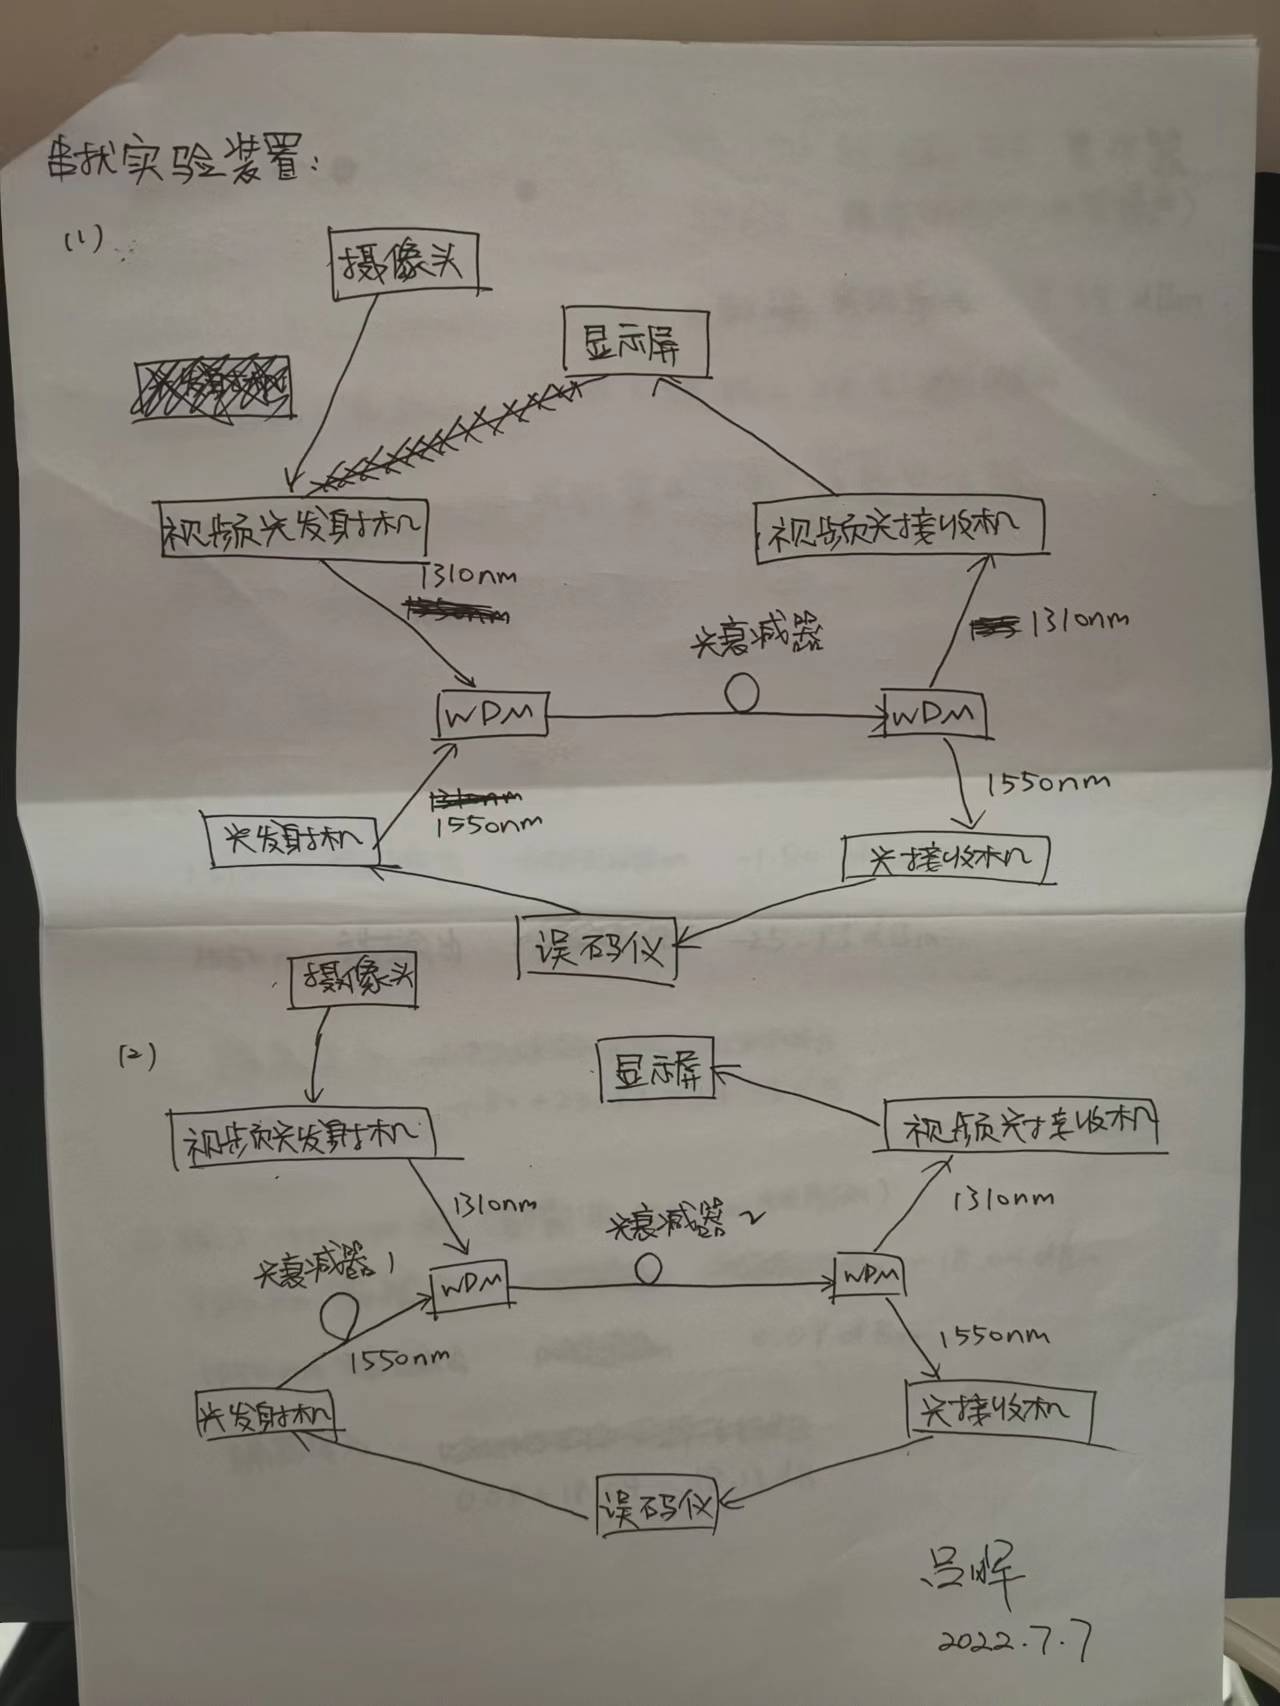 串扰实验装置：
(1)
摄像头
显示屏
视频光发射机
视频光接收机
1310nm
光衰减器
1310nm
WDM
WDM
1550nm
1550nm
光发射机
光接收机
误码仪
摄像头
(2)
显示屏
视频光发射机
视频光接收机
1310nm
1310nm
光衰减器2
光衰减器1
WDM
WDM
1550nm
1550nm
光发射机
光接收机
误码仪
吕晖
2022.7.7